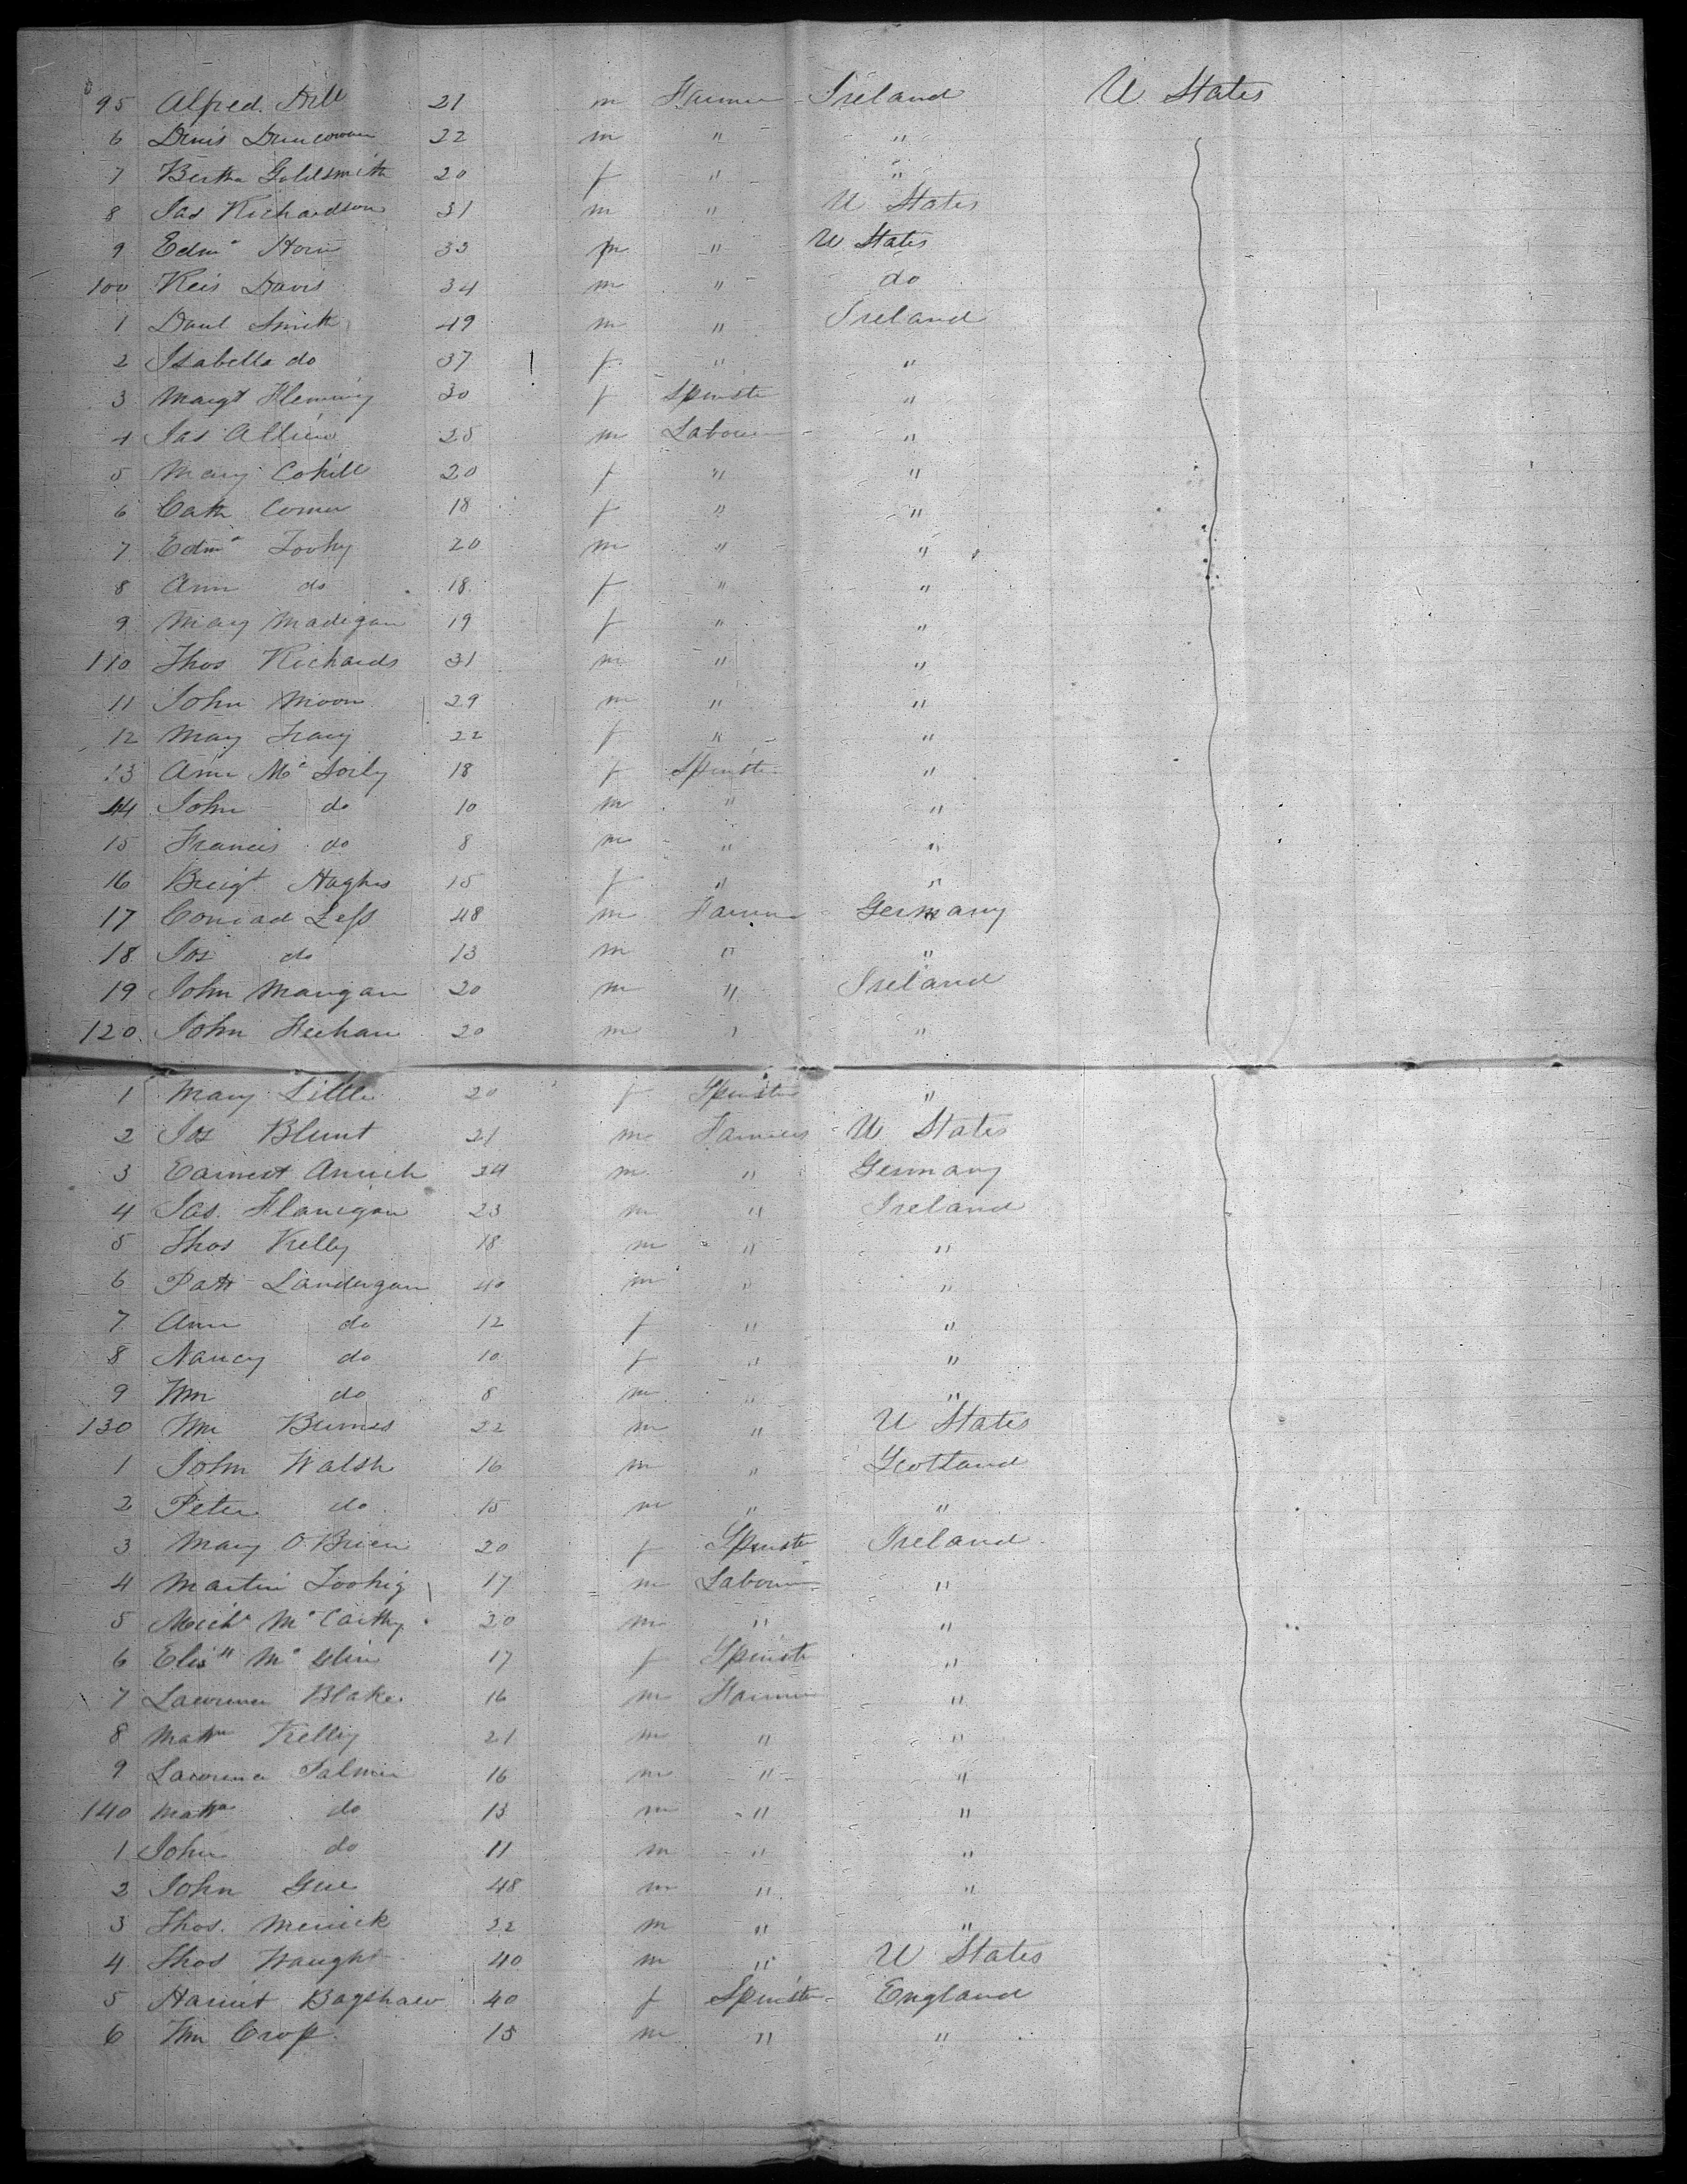 95 Alfred Dill 21 m Farmer Ireland U States
6 Denis 22 m " "
7 Bertha Goldsmith 20 f " "
8 Jas Richardson 31 m " U States
9 Edmd Horn 33 m " U States
100 Davis 34 m " do
1 Danl Smith 49 m " Ireland
2 Isabella do 37 f " "
3 Margt Fleming 30 f Spinster "
4 Jas 25 m Labourer "
5 Mary Cohill 20 f " "
6 Cath 18 f " "
7 Edmd Toohy 20 m " "
8 Ann do 18 f " "
9 Mary Madigan 19 f " "
110 Thos Richards 31 m " "
11 John Moon 29 m " "
12 Mary 22 f " "
13 Ann Mc Sorly 18 f Spinster "
14 John do 10 m " "
15 Francis do 8 m " "
16 Hughs 15 f " "
17 Conrad Less 48 m Farmer Germany
18 Jos do 13 m " "
19 John Mangan 20 m " Ireland
120 John Feehan 20 m " "
1 Mary Little 20 f Spinster "
2 Jos Blunt 21 m Farmers U States
3 Earnest 24 m " Germany
4 Jas. Flanigan 23 m " Ireland
5 Thos Kelly 18 m " "
6 Patt Landergan 40 m " "
7 Ann do 12 f " "
8 Nancy do 10 f " "
9 Wm do 8 m " "
130 Wm 22 m " U States
1 John Walsh 16 m " Scotland
2 Peter do 15 m " "
3 Mary O'Brien 20 f Spinster Ireland
4 Martin Toohig 17 m Labourer "
5 Michl McCarthy 20 m " "
6 17 f Spinster "
7 Lawrence Blake 16 m Farmer "
8 Mattw Kelly 21 m " "
9 Lawrence Palmer 16 m " "
140 Mattw do 13 m " "
1 John do 11 m " "
2 John 48 m " "
3 Thos. Merrick 22 m " "
4 Thos Waught 40 m " U States
5 Harriet Bagshaw 40 f Spinster England
6 Wm Crop 15 m " "